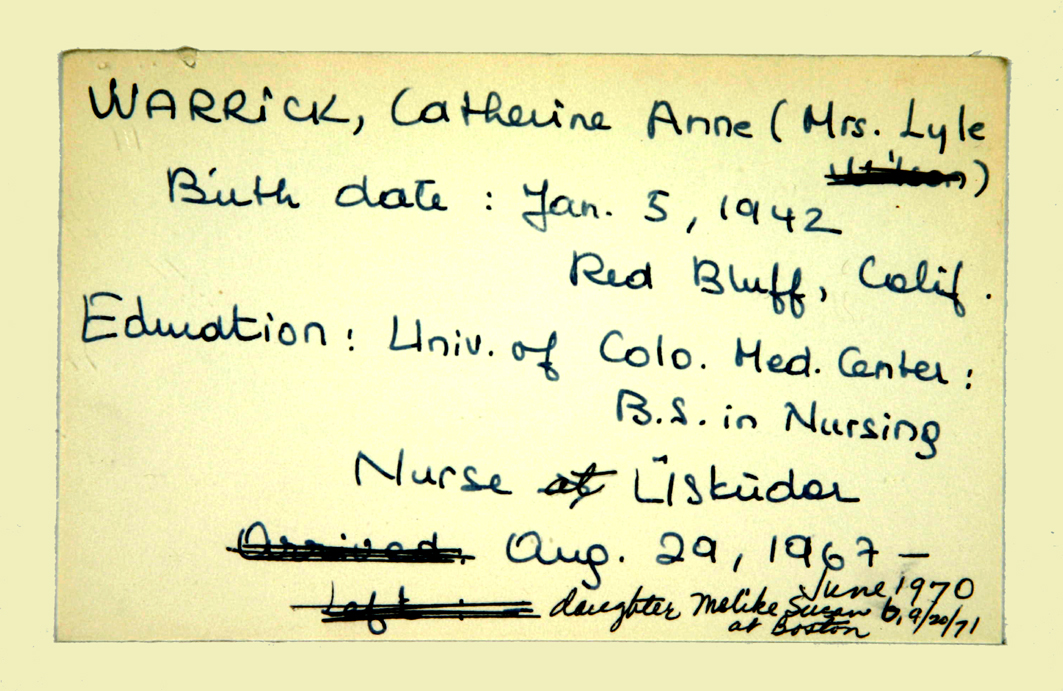 WARRICK, Catherine Anne (Mrs. Lyle
Wilson)
Birth date : Jan. 5, 1942
Red Bluff, Calif.
Education : Univ. of Colo. Med. Center :
B.S. in Nursing
Nurse at Üsküdar
Arrived. Aug. 29, 1967 –
June 1970
Left : daughter Melike Susan b. 9/20/71
at Boston